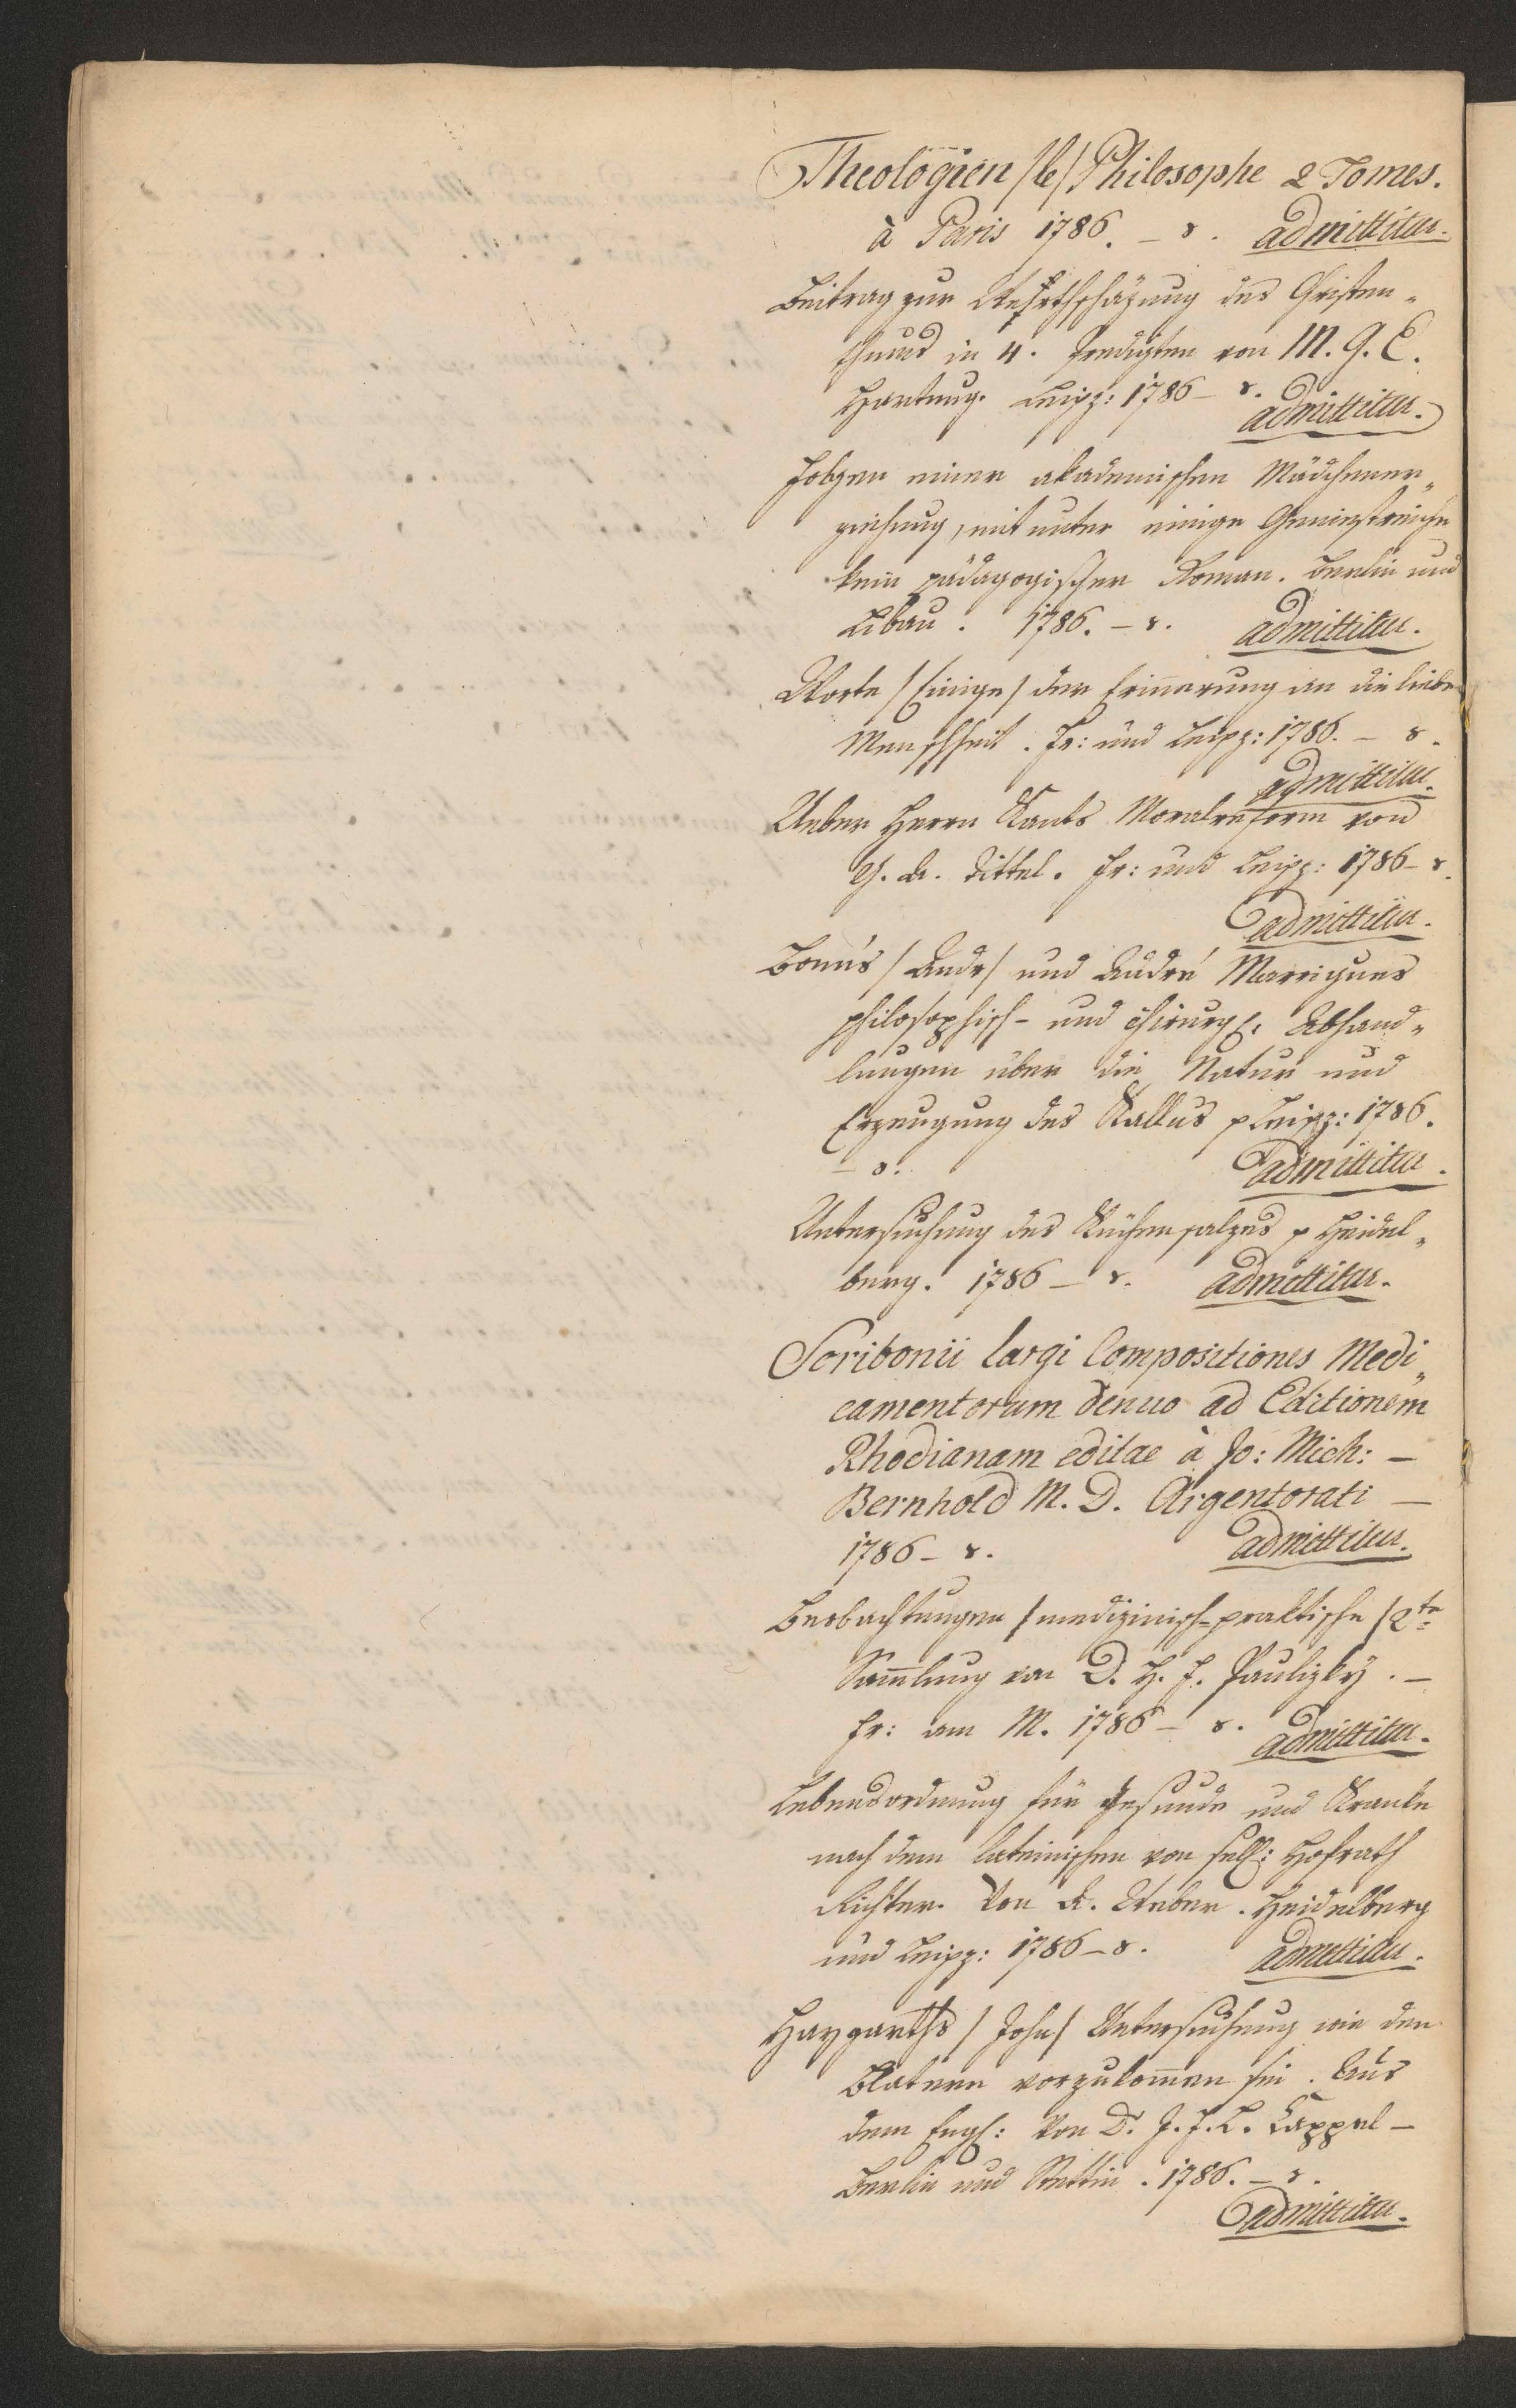 Theologien /le/ Philosophe 2 Tomes.
à Paris 1786. – 8. admittitur.
Beitrag zur Wehrtschäzung des Christen„
thums in 4. Predigten von M. G. E.
Hartung. Leipz: 1786 – 8.
admittitur.
Folgen einer akademischen Mädchener„
ziehung, mit unter einige Geniestreiche
kein pädagogischer Roman. Berlin und
Libau. 1786. – 8. admittitur.
Worte /Einige/ der Erinnerung an die liebe
Menschheit. Fr: und Leipz: 1786. – 8.
admittitur.
Ueber Herrn Kants Moralreform von
G. A. Tittel. Fr: und Leipz: 1786 – 8.
admittitur.
Bonn's /Andr/ und André Marrigues
philosophisch- und chirurg: Abhand„
lungen über die Natur und
Erzeugung des Kallus p Leipz: 1786.
– 8. admittitur.
Untersuchung des Küchensalzes p Heidel„
berg. 1786 – 8. admittitur.
Scribonii largi Compositiones Medi„
camentorum denuo ad Editionem
Rhodianam editae à Jo: Mich: –
Bernhold M. D. Argentorati –
1786 – 8. admittitur.
Beobachtungen /medizinisch-praktische/ 2te
Sammlung von D. H. F. Paulizky. –
Fr: am M. 1786 – 8. admittitur.
Lebensordnung für Gesunde und Kranke
nach dem lateinischen von sell: Hofrath
Richter. Von A. Weber. Heidelberg
und Leipz: 1786 – 8. admittitur.
Haygarths /John/ Untersuchung wie den
Blatern vorzukommen sei. Aus
dem Engl: Von D. J. F. L. Cappel –
Berlin und Stettin. 1786. – 8.
admittitur.